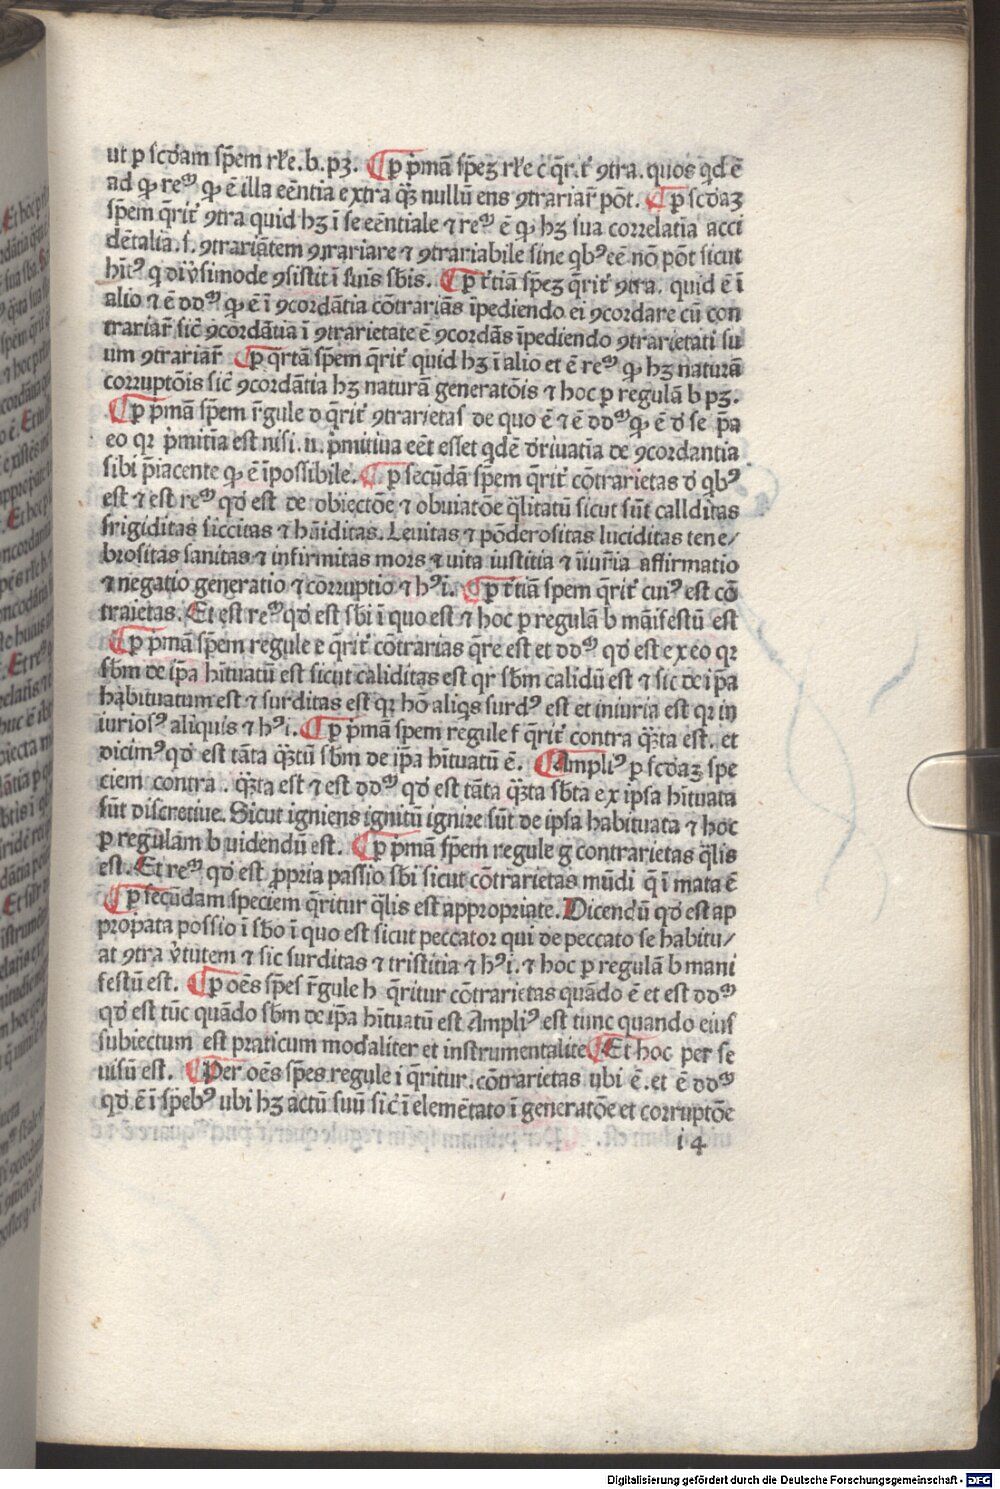 ut ꝑ scd̓am sp̄em rl̓e. b. pꝫ. ¶ ꝑ p̄mā sp̄eꝫ rl̓e c̓ q̄r. t̓ ꝯtra. quos qd̓ ē
ad qꝛ reꝰ qꝛ ē illa eēntia extra qͣꝫ nullū ens ꝯtrariar̄ pōt. ¶ ꝑ scd̓aꝫ
sp̄em q̄rit̓ ꝯtra quid hꝫ ī se eēntiale ⁊ reꝰ ē qꝛ hꝫ sua correlatia acci
dētalia. s. ꝯtrariātem ꝯtrariare ⁊ ꝯtrariabile sine qbꝰ eē nō pōt sicut
ꝯsistit ī suis sbis. ¶ ꝑ t̓tiā sp̄eꝫ q̄rit̓ ꝯtra. quid ē ī
alio ⁊ ē ddꝰ qꝛ ē ī ꝯcordātia cōtrariās īpediendo ei ꝯcordare cū con
trariar̄ sic̓ ꝯcordātia ī ꝯtrarietate ē ꝯcordās īpediendo ꝯtrarietati su
um ꝯtrariar̄ ¶ ꝑ qrtā sp̄em q̄rit̓ quid hꝫ ī alio et ē reꝰ qꝛ hꝫ naturā
corruptōis sic̓ ꝯcordātia hꝫ naturā generatōis ⁊ hoc ꝑ regulā b pꝫ.
¶ ꝑ p̄mā sp̄em r̄gule d q̄rit̓ ꝯtrarietas de quo ē ⁊ ē ddꝰ qꝛ ē d̓ se p̄a
eo qr p̄mitia est nisi. n. p̄mitiua eēt esset qd̓ ē d̓riuatia de ꝯcordantia
sibi p̄iacente qꝛ ē īpossibile. ¶ ꝑ secūdā sp̄em q̄rit̓ cōtrarietas d̓ qbꝰ
est ⁊ est reꝰ qd̓ est de obiectōe ⁊ obuiatōe q̄litatū sicut sūt calliditas
frigiditas siccitas ⁊ hūiditas. Leuitas ⁊ pōderositas luciditas tene/
brositas sanitas ⁊ infirmitas mors ⁊ uita iustitia ⁊ iīuria affirmatio
⁊ negatio generatio ⁊ corruptio ⁊ hꝰi. ¶ ꝑ t̓tiā spem q̄rit̓ cuiꝰ est cō
traietas. Et est reꝰ qd̓ est sbi ī quo est ⁊ hoc ꝑ regulā b māifestū est
¶ ꝑ p̄mā sp̄em regule e q̄rit̓ cōtrarias q̄re est et ddꝰ qd̓ est ex eo qr
sbm de ip̄a hītuatū est sicut caliditas est qr sbm calidū est ⁊ sic de ip̄a
habituatum est ⁊ surditas est qr hō aliqs surdꝰ est et iniuria est qr in
iuriosꝰ aliquis ⁊ hꝰi. ¶ ꝑ p̄mām spem regule f q̄rit̓ contra qͣꝫta est. et
dicimꝰ qd̓ est tāta qͣꝫtū sbm de ip̄a hītuatū ē. ¶ Ampliꝰ ꝑ scd̓aꝫ spe
ciem contra. qͣꝫta est ⁊ est ddꝰ qd̓ est tāta qͣꝫta sbta ex ipsa hītuata
sūt discretiue. Sicut igniens ignitū ignire sūt de ipsa habituata ⁊ hoc
ꝑ regulam b uidendū est. ¶ ꝑ p̄mām sp̄em regule g contrarietas q̄lis
est. Et reꝰ qd̓ est ꝓpria passio sbi sicut cōtrarietas mūdi q̄ ī mata ē
¶ ꝑ secūdam speciem q̄ritur q̄lis est appropriate. Dicendū qd̓ est ap
propata possio ī sbo ī quo est sicut peccator qui de peccato se habitu/
at ꝯtra v̓tutem ⁊ sic surditas ⁊ tristitia ⁊ hꝰi. ⁊ hoc ꝑ regulā b mani
festū est. ¶ ꝑ oēs sp̄es r̄gule h q̄ritur cōtrarietas quādo ē et est ddꝰ
qd̓ est tūc quādo sbm de ip̄a hītuatū est Ampliꝰ est tunc quando eius
subiectum est praticum modaliter et instrumentalite ¶ Et hoc per se
uisū est. ¶ Per oēs sp̄es regule i q̄ritur. cōtrarietas ubi ē. et ē ddꝰ
qd̓ ē ī sp̄ebꝰ ubi hꝫ actū suū sic̓ ī elemētato ī generatōe et corruptōe
i 4
Digitalisierung gefördert durch die Deutsche Forschungsgemeinschaft - DFG